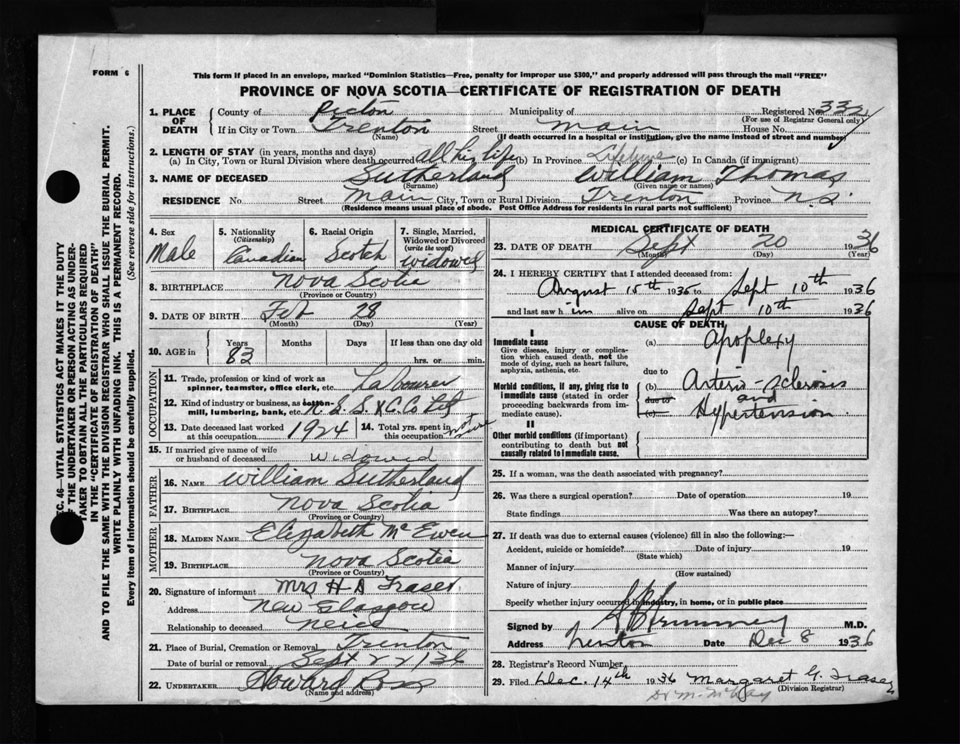 FORM 6
This form if placed in an envelope, marked "Dominion Statistics—Free, penalty for improper use $300," and properly addressed will pass through the mail "FREE"
PROVINCE OF NOVA SCOTIA—CERTIFICATE OF REGISTRATION OF DEATH
1. PLACE OF DEATH
County of Pictou Municipality of Registered No.
(For use of Registrar General only)
If in City or Town Trenton Street Main House No.
(Name) (If death occurred in a hospital or institution, give the name instead of street and number)
2. LENGTH OF STAY (in years, months and days)
(a) In City, Town or Rural Division where death occurred all his life (b) In Province Lifetime (c) In Canada (if immigrant)
3. NAME OF DECEASED Sutherland William Thomas
(Surname) (Given name or names)
RESIDENCE No. Street Main City, Town or Rural Division Trenton Province N.S.
(Residence means usual place of abode. Post Office Address for residents in rural parts not sufficient)
4. Sex Male
5. Nationality (Citizenship) Canadian
6. Racial Origin Scotch
7. Single, Married, Widowed or Divorced (write the word) widowed
8. BIRTHPLACE Nova Scotia
(Province or Country)
9. DATE OF BIRTH Feb 28
(Month) (Day) (Year)
10. AGE in Years Months Days If less than one day old
83 hrs. or min.
OCCUPATION
11. Trade, profession or kind of work as spinner, teamster, office clerk, etc. Labourer
12. Kind of industry or business, as cotton-mill, lumbering, bank, etc. N.S.S. & C. Co Ltd
13. Date deceased last worked at this occupation 1924
14. Total yrs. spent in this occupation not sure
15. If married give name of wife or husband of deceased widowed
FATHER
16. NAME William Sutherland
17. BIRTHPLACE Nova Scotia
(Province or Country)
MOTHER
18. MAIDEN NAME Elizabeth McEwen
19. BIRTHPLACE Nova Scotia
(Province or Country)
20. Signature of informant Mrs H D Fraser
Address New Glasgow
Relationship to deceased Neice
21. Place of Burial, Cremation or Removal Trenton
Date of burial or removal Sept 22/36
22. UNDERTAKER Howard Ross
(Name and address)
MEDICAL CERTIFICATE OF DEATH
23. DATE OF DEATH Sept 20 1936
(Month) (Day) (Year)
24. I HEREBY CERTIFY that I attended deceased from:
August 15th 1936 to Sept 10th 1936
and last saw him alive on Sept 10th 1936
CAUSE OF DEATH
I
Immediate cause
Give disease, injury or complication which caused death, not the mode of dying, such as heart failure, asphyxia, asthenia, etc.
(a) Apoplexy
due to
Morbid conditions, if any, giving rise to immediate cause (stated in order proceeding backwards from immediate cause).
(b) Arterio-sclerosis
due to and
(c) Hypertension
II
Other morbid conditions (if important) contributing to death but not causally related to immediate cause.
25. If a woman, was the death associated with pregnancy?
26. Was there a surgical operation? Date of operation 19
State findings Was there an autopsy?
27. If death was due to external causes (violence) fill in also the following:—
Accident, suicide or homicide? Date of injury 19
(State which)
Manner of injury
(How sustained)
Nature of injury
Specify whether injury occurred in industry, in home, or in public place
Signed by M.D.
Address Trenton Date Dec 8 1936
28. Registrar's Record Number
29. Filed Dec. 14th 1936 Margaret G. Fraser
(Division Registrar)
SEC. 46—VITAL STATISTICS ACT MAKES IT THE DUTY
OF THE UNDERTAKER OR PERSON ACTING AS UNDER-
TAKER TO OBTAIN ALL THE PARTICULARS REQUIRED
IN THE "CERTIFICATE OF REGISTRATION OF DEATH"
AND TO FILE THE SAME WITH THE DIVISION REGISTRAR WHO SHALL ISSUE THE BURIAL PERMIT.
WRITE PLAINLY WITH UNFADING INK. THIS IS A PERMANENT RECORD.
Every item of information should be carefully supplied. (See reverse side for instructions.)